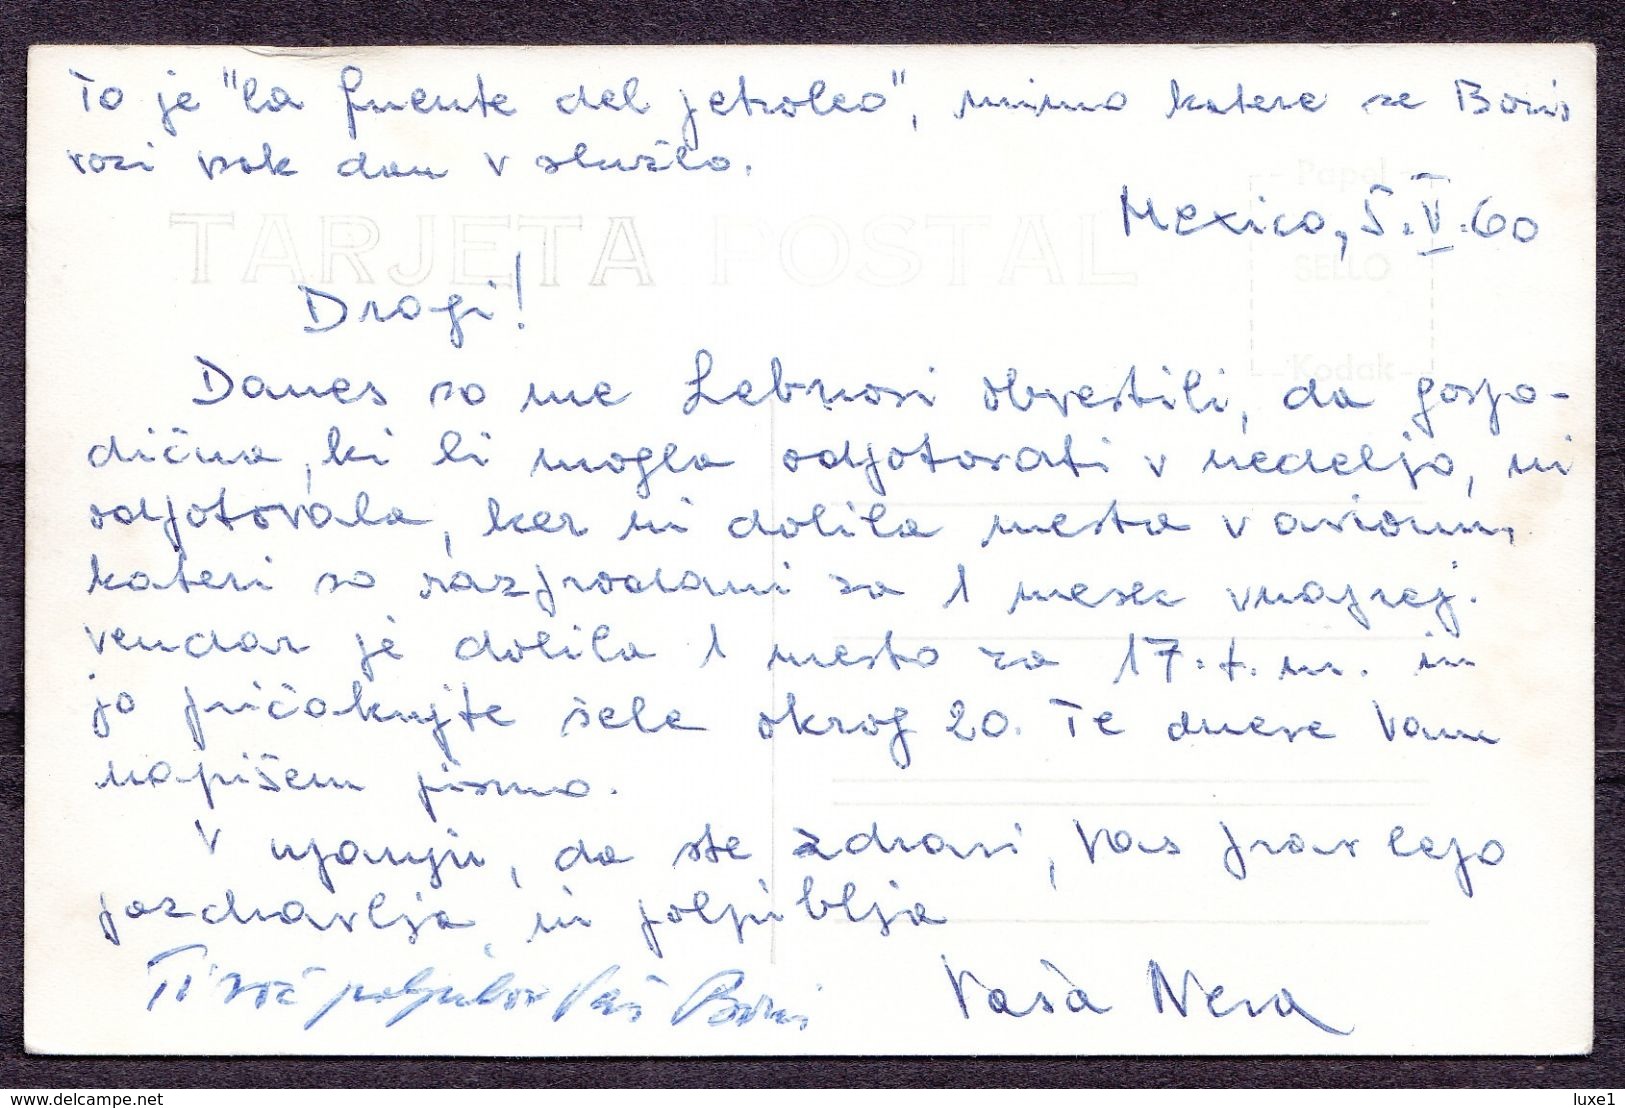 To je "la fuente del petroleo", mimo katere se Boris
vozi vsak dan v službo.
Papel
TARJETA POSTAL
Mexico, 5.V.60
SELLO
Dragi!
Kodak
Danes so me Lebnosi obvestili, da gospo-
dična, ki bi mogla odpotovati v nedeljo, ni
odpotovala, ker ni dobila mesta v avionu,
kateri so razprodani za 1 mesec vnaprej.
vendar je dobila 1 mesto za 17. t. m. in
jo pričakujte šele okrog 20. Te dneve Vam
napišem pismo.
V upanju, da ste zdravi, Vas prav lepo
pozdravlja in poljublja
Vaša Nera
Vaš Boris
delcampe.net
luxe1